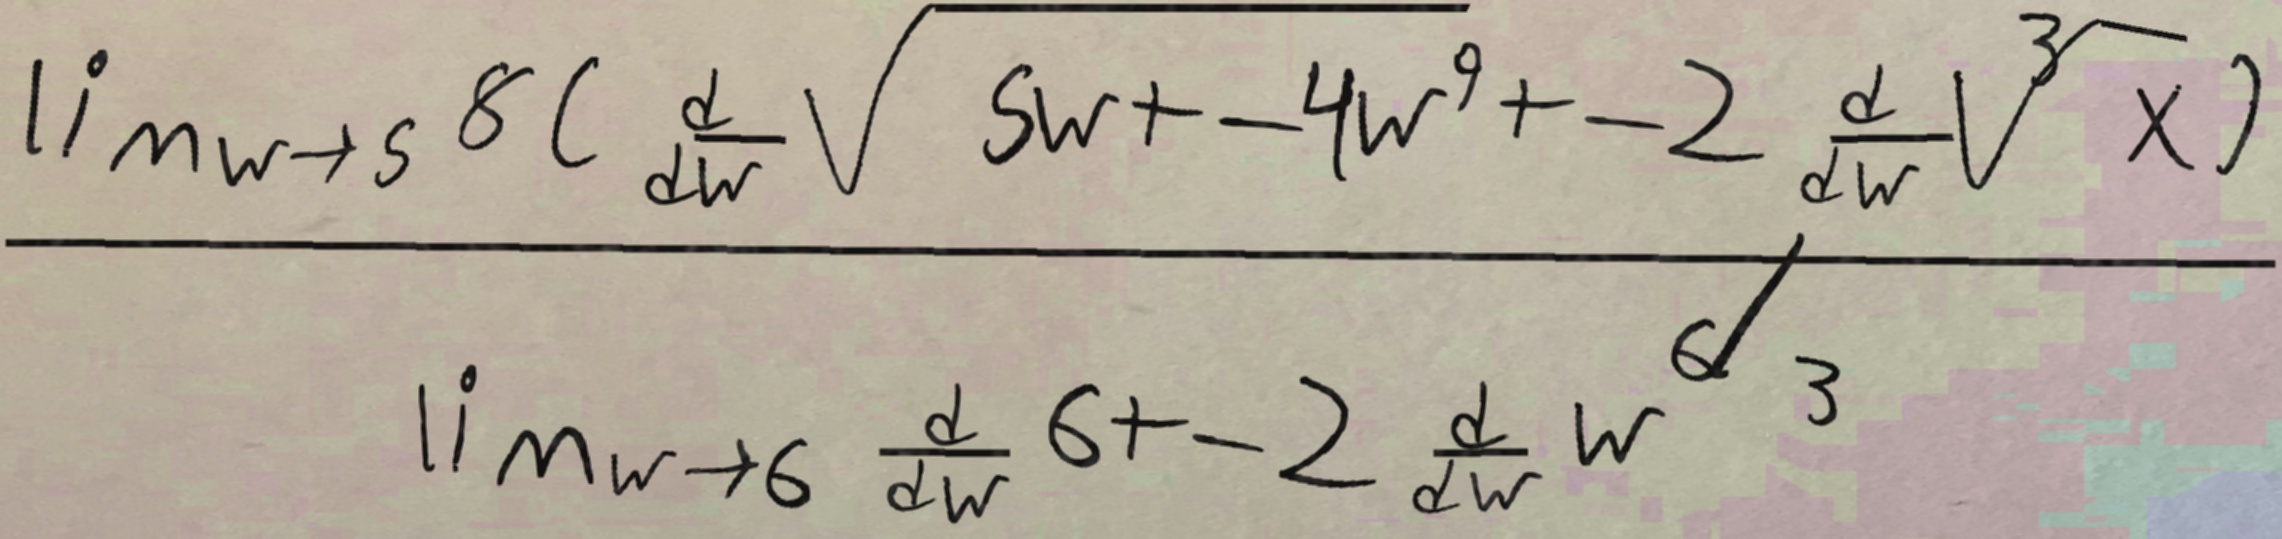 lim_{w→5} 8(\frac{d}{dw}\sqrt{5w+-4w^9}+-2\frac{d}{dw}\sqrt[3]{x})
lim_{w→6} \frac{d}{dw}6+-2\frac{d}{dw}w^{6/3}